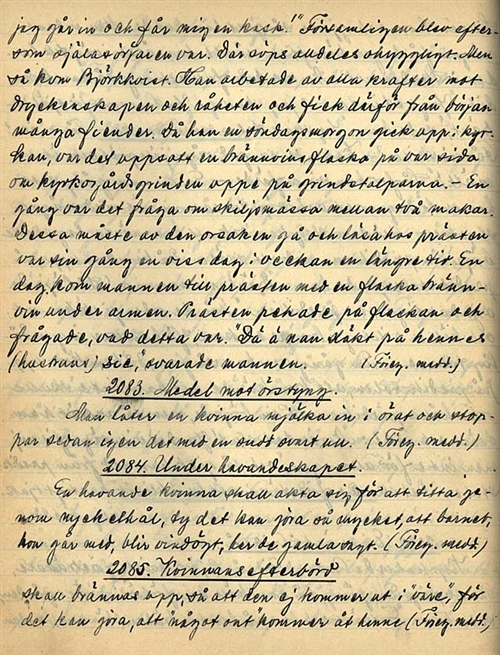 jag går in och får mig en kask!" Församlingen blev efter-
som själasörjaren var. Där söps alldeles ohyggligt. Men
så kom Björkkvist. Han arbetade av alla krafter mot
dryckenskapen och råheten och fick därför från början
många fiender. Då han en söndagsmorgon gick opp i kyr-
kan, var det uppsatt en brännvinsflaska på var sida
om kyrkogårdsgrinden uppe på grindstolparna. – En
gång var det fråga om skiljsmässa mellan två makar.
Dessa måste av den orsaken gå och läsa hos prästen
var sin gång en viss dag i veckan en längre tid. En
dag kom mannen till prästen med en flaska bränn-
vin under armen. Prästen pekade på flaskan och
frågade, vad detta var. "Då ä nan släkt på hennes
(hustruns) sie", svarade mannen. (Föreg. medd.)
2083. Medel mot örstyng.
Man låter en kvinna mjölka in i örat och stop-
par sedan igen det med en sudd svart ull. (Föreg. medd.)
2084. Under havandeskapet.
En havande kvinna skall akta sig för att titta ge-
nom nyckelhål, ty det kan göra så mycket, att barnet,
hon går med, blir vindögt, har de gamla sagt. (Föreg. medd.)
2085. Kvinnans efterbörd
skall brännas opp, så att den ej kommer ut i "väre", för
det kan göra, att "något ont" kommer åt henne (Föreg. medd.)